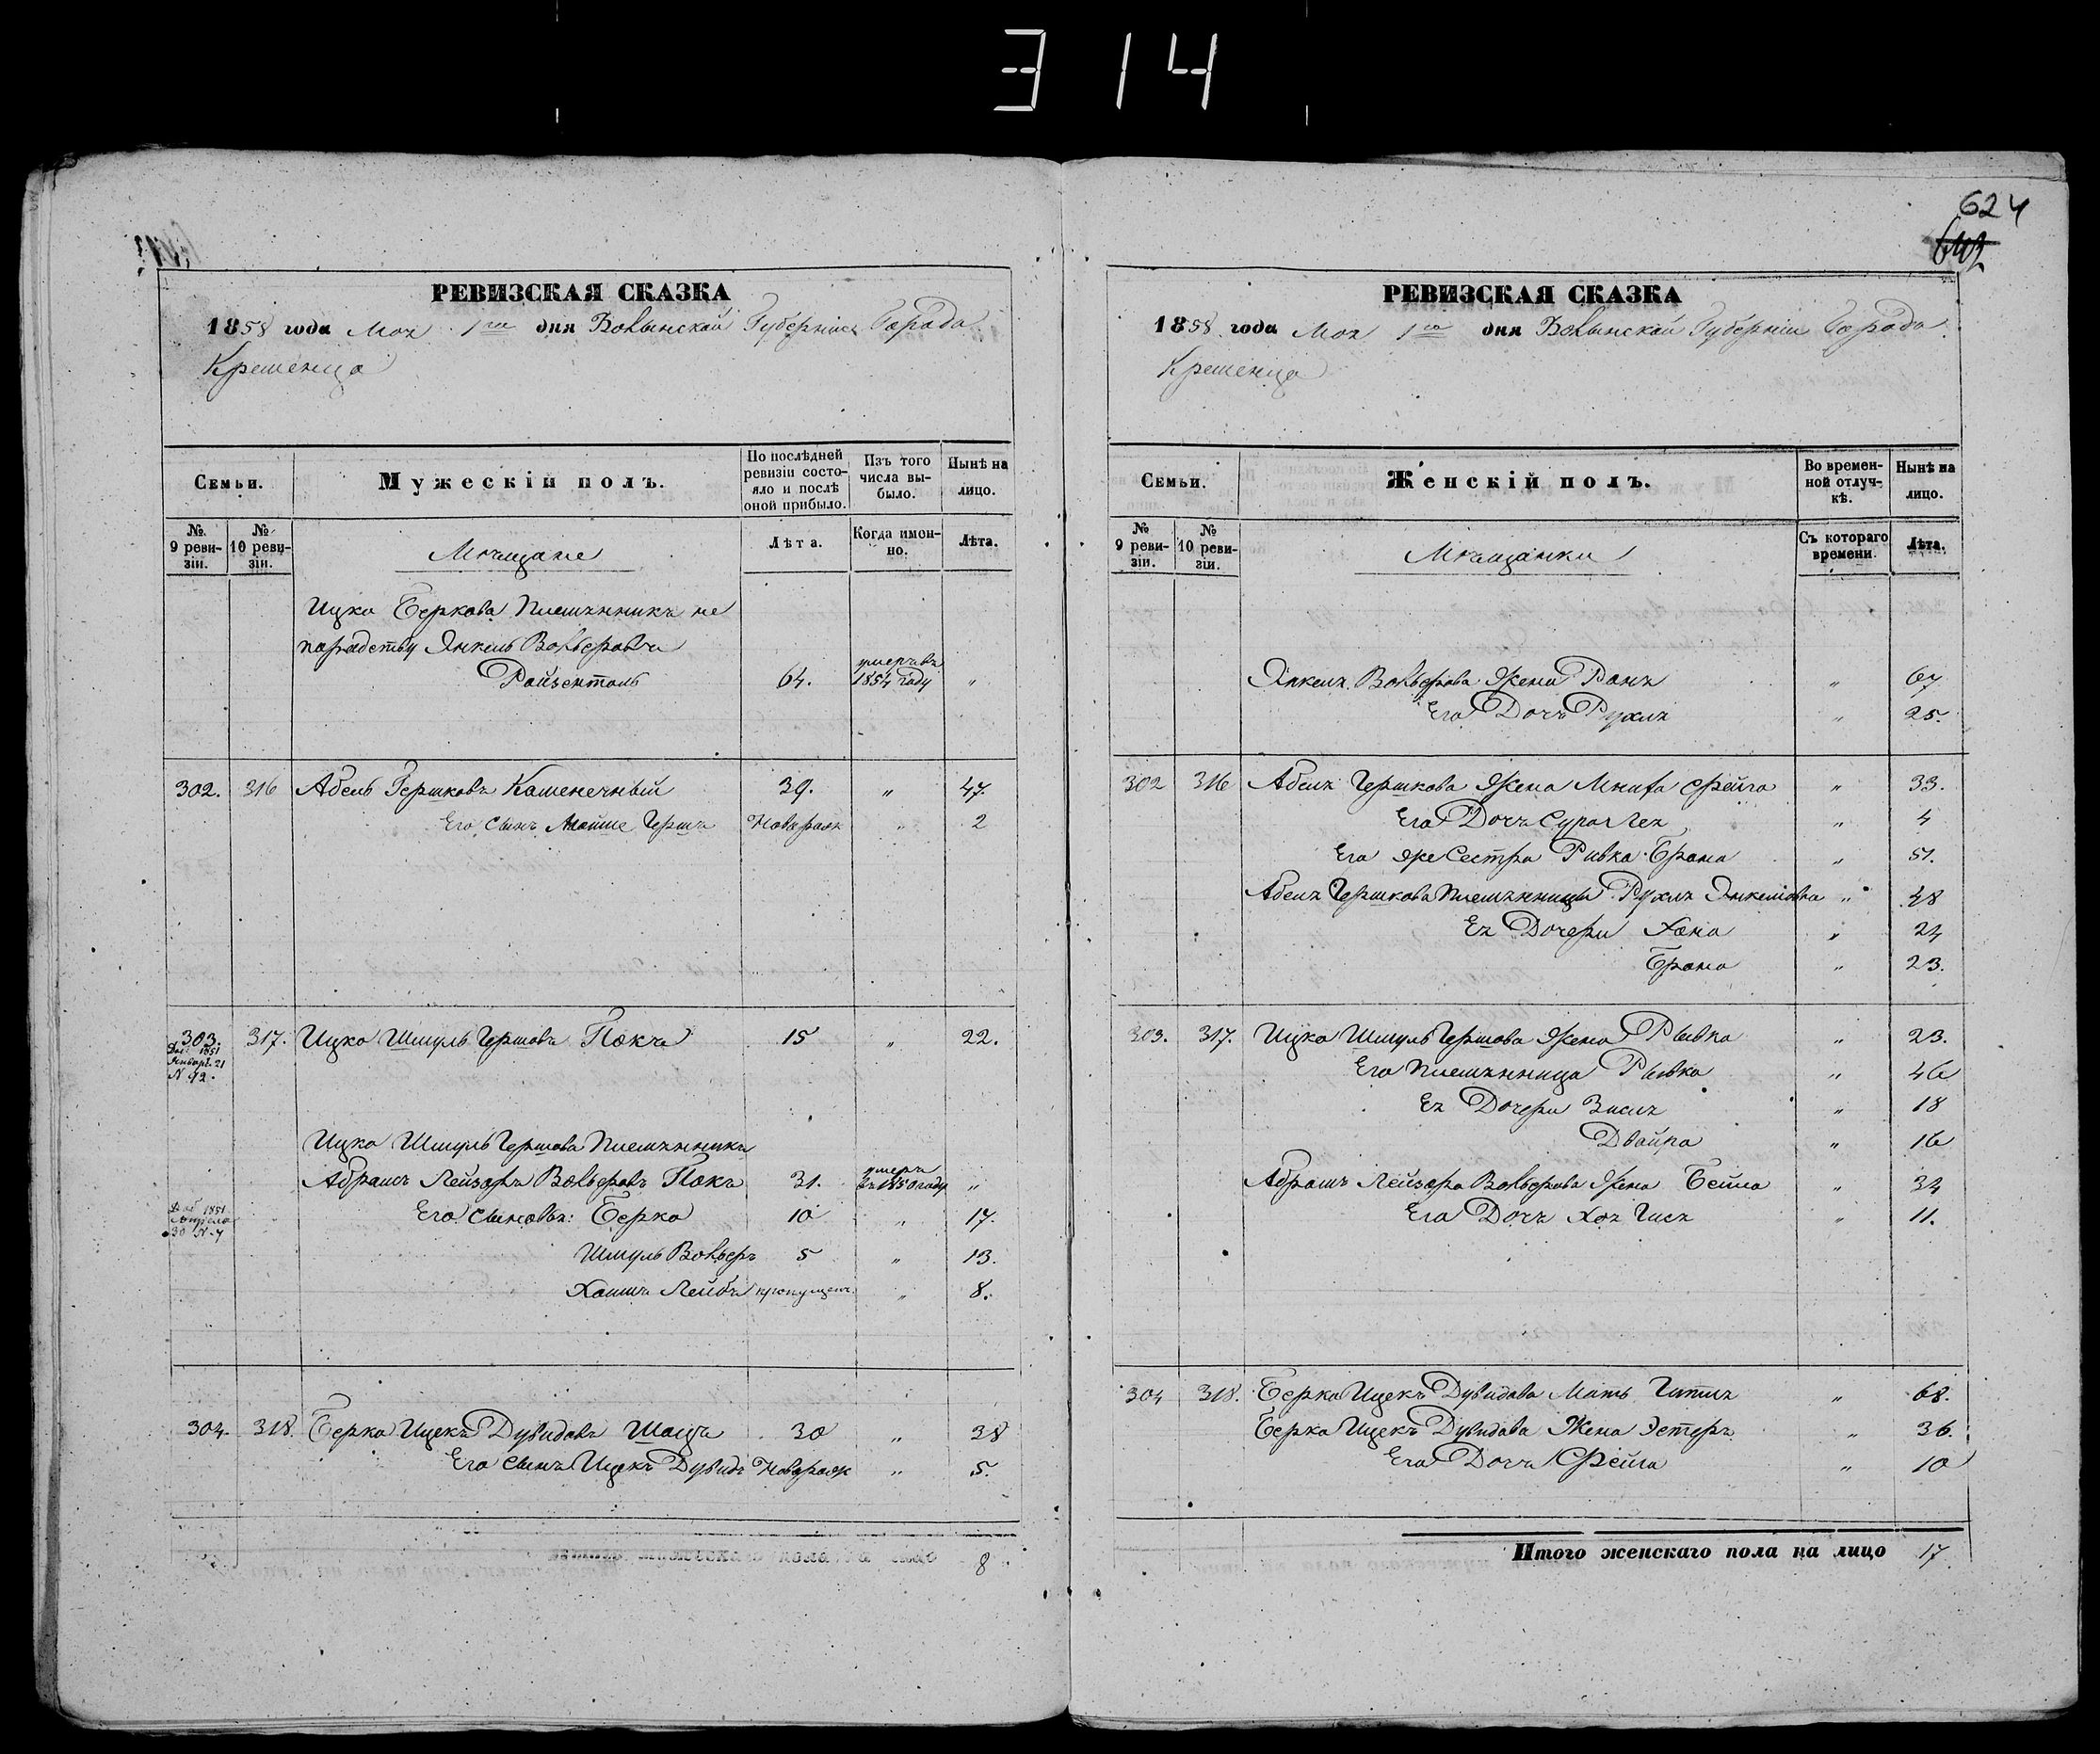 314
624
РЕВИЗСКАЯ СКАЗКА
1858 года Мая 1го дня Волынской Губернии Города
Кременца
Семьи.
Мужескій полъ.
По послѣдней ревизіи состояло и послѣ оной прибыло.
Изъ того числа выбыло.
Нынѣ на лицо.
№ 9 ревизіи.
№ 10 ревизіи.
Мѣщане
Лѣта.
Когда имонно.
Лѣта.
Ицка Беркова Племянникъ не
породству Янкель Вольфовъ
Ройзенталь 64. умеръ въ 1854 году "
302. 316 Абель Гершковъ Каменечный 39. " 47.
Его сынъ Мойше Гершъ Новорож " 2
303. 317. Ицко Шмуль Гершовъ Покъ 15 " 22.
1851 Январь 21 N 92.
Ицка Шмуль Гершова Племянникъ
Абрамъ Лейзоръ Вольфовъ Покъ 31. умеръ въ 1850 году "
1851 Апреля 30 N 7
Его сыновья: Берко 10 " 17.
Шмуль Вольфъ 5 " 13.
Хаимъ Лейбъ пропущенъ " 8.
304. 318. Берко Ицекъ Дувидовъ Шацъ 30 " 38
Его сынъ Ицекъ Дувидъ Новорож " 5.
Итого мужескаго пола на лицо 8
РЕВИЗСКАЯ СКАЗКА
1858 года Мая 1го дня Волынской Губерніи Города
Кременца
Семьи.
Женскій полъ.
Во временной отлучкѣ.
Нынѣ на лицо.
№ 9 ревизіи.
№ 10 ревизіи.
Мѣщанки
Съ котораго времени.
Лѣта.
Янкеля Вольфова Жена Роня " 67
Его Дочь Рухля " 25.
302 316 Абеля Гершкова Жена Фейга " 33.
Его Дочь Сура Лея " 4
Его же Сестра Ривка Брана " 51.
Абеля Гершкова Племянница Рухля Янкелиовна " 48
Ея Дочери Хана " 24
Брана " 23.
303. 317. Ицка Шмуль Гершова Жена Рывка " 23.
Его Племянница Рывка " 46
Ея Дочери Зисля " 18
Двойра " 16
Абрамъ Лейзора Вольфова Жена Бейла " 34
Его Дочь Хая Гися " 11.
304 318. Берка Ицекъ Дувидова Мать Гитля " 68.
Берка Ицекъ Дувидова Жена Эстеръ " 36.
Его Дочь Фейга " 10
Итого женскаго пола на лицо 17